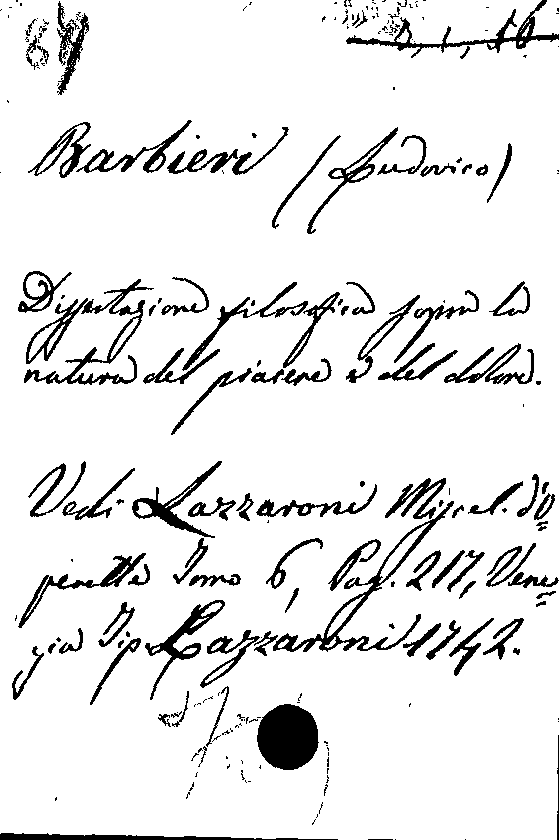 84 3, 1, 56
Barbieri (Ludovico)
Dissertazione filosofica sopra la
natura del piacere e del dolore.
Vedi Lazzaroni Miscel. d'O=
perette Tomo 6, Pag. 217, Vene=
zia Tip. Lazzaroni 1742.